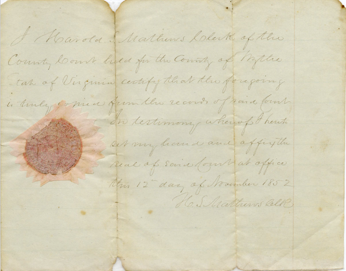 I Harold S Mathews Clerk of the
County Court held for the County of Wythe
State of Virginia certify that the foregoing
is truly made from the records of said Court
In testimony whereof I have
set my hand and affix the
seal of said Court at office
this 12 day of November 1852
H. S. Mathews Clk